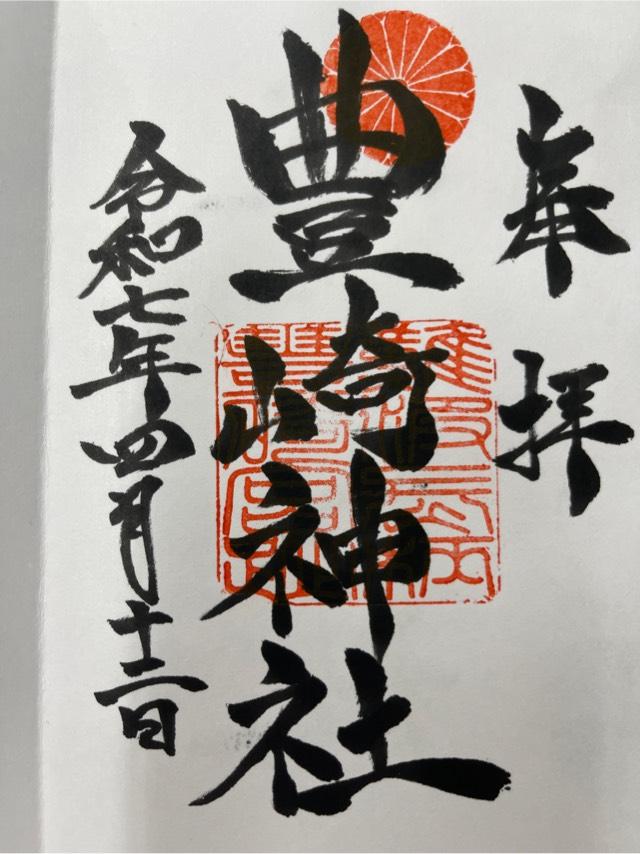 奉拝
豊崎神社
令和七年四月十二日